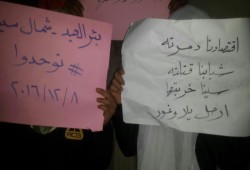 اقتصادنا دمرته
شبابنا قتلته
سينا خربتها
ارحل يلا وغور
بئر العبد شمال سي
#توحدوا
٢٠١٦/١٢/٨